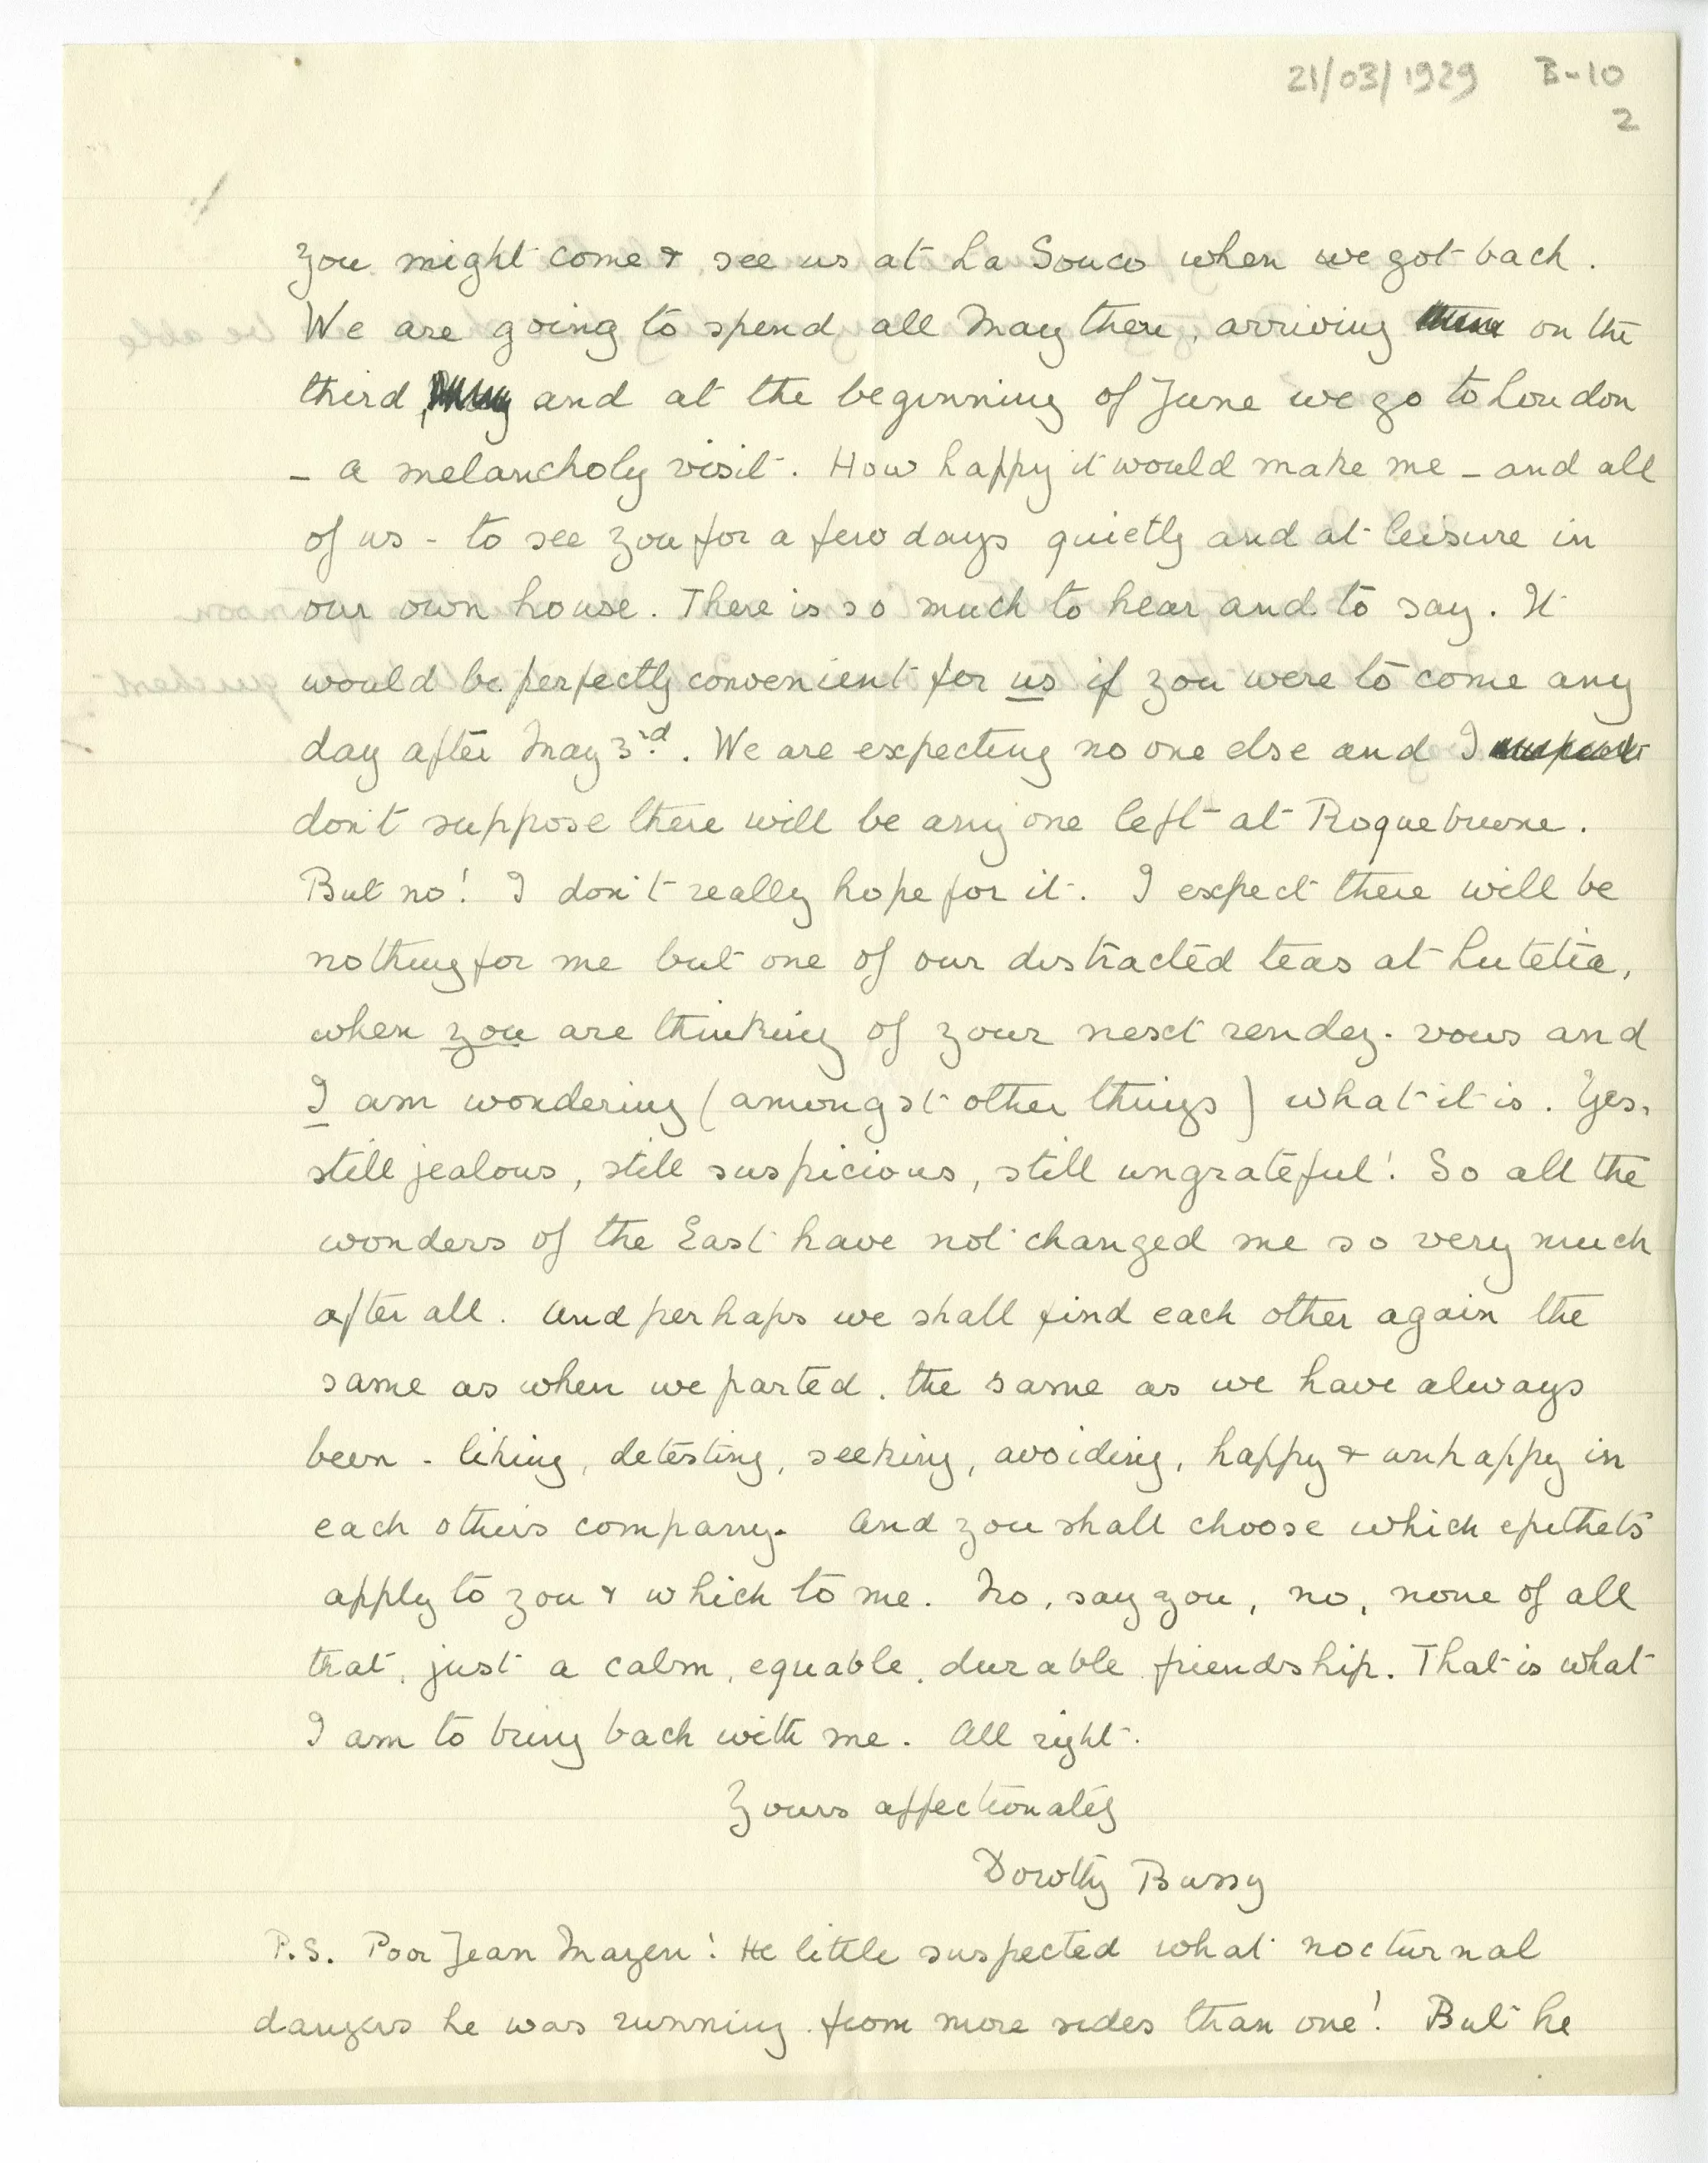 21/03/1929 B-10
2
you might come & see us at La Souco when we got back.
We are going to spend all May there, arriving there on the
third, May and at the beginning of June we go to London
– a melancholy visit. How happy it would make me – and all
of us – to see you for a few days quietly and at leisure in
our own house. There is so much to hear and to say. It
would be perfectly convenient for us if you were to come any
day after May 3rd. We are expecting no one else and I
don't suppose there will be any one left at Roquebrune.
But no! I don't really hope for it. I expect there will be
nothing for me but one of our distracted teas at Lutetia,
when you are thinking of your next rendez-vous and
I am wondering (amongst other things) what it is. Yes,
still jealous, still suspicious, still ungrateful! So all the
wonders of the East have not changed me so very much
after all. And perhaps we shall find each other again the
same as when we parted, the same as we have always
been – liking, detesting, seeking, avoiding, happy & unhappy in
each others company. And you shall choose which epithets
apply to you & which to me. No, say you, no, none of all
that, just a calm, equable, durable friendship. That is what
I am to bring back with me. All right.
Yours affectionately
Dorothy Bussy
P.S. Poor Jean Mazen! He little suspected what nocturnal
dangers he was running from more sides than one! But he